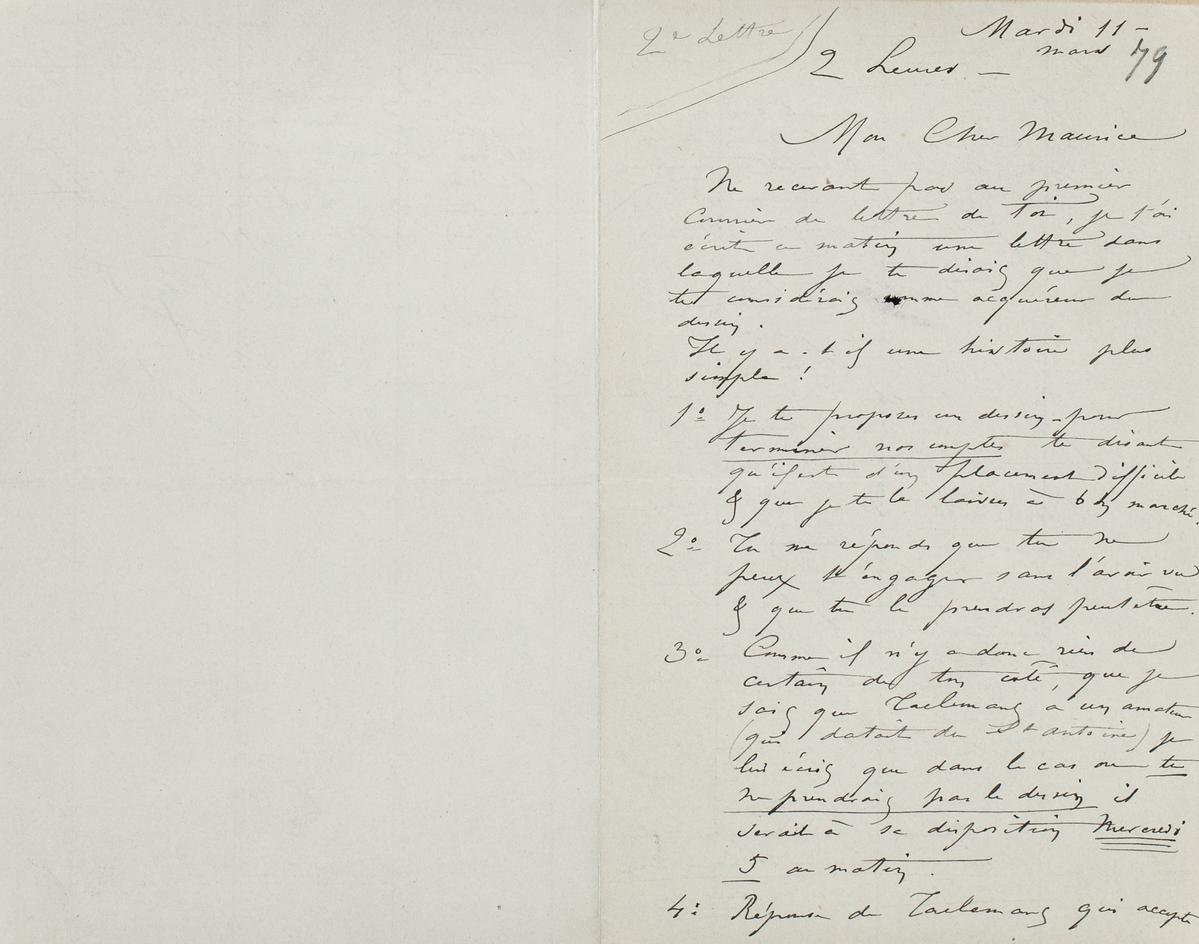 2e Lettre
Mardi 11 –
mars 79
2 heures –
Mon Cher Maurice
Ne recevant pas au premier
courrier de lettre de toi, je t'ai
écrit ce matin une lettre dans
laquelle je te disais que je
te considérais comme acquéreur du
dessin.
Il y a-t-il une histoire plus
simple !
1o Je te propose un dessin pour
terminer nos comptes te disant
qu'il est d'un placement difficile
& que je te le laisse à bon marché.
2o Tu me réponds que tu ne
peux t'engager sans l'avoir vu
& que tu le prendras peut être.
3o Comme il n'y a donc rien de
certain de ton côté, que je
sais que Taelemans a un amateur
(qui datait du St antoine) je
lui écris que dans le cas ou tu
ne prendrais pas le dessin il
serait à sa disposition Mercredi
5 au matin.
4o Réponse de Taelemans qui accepte